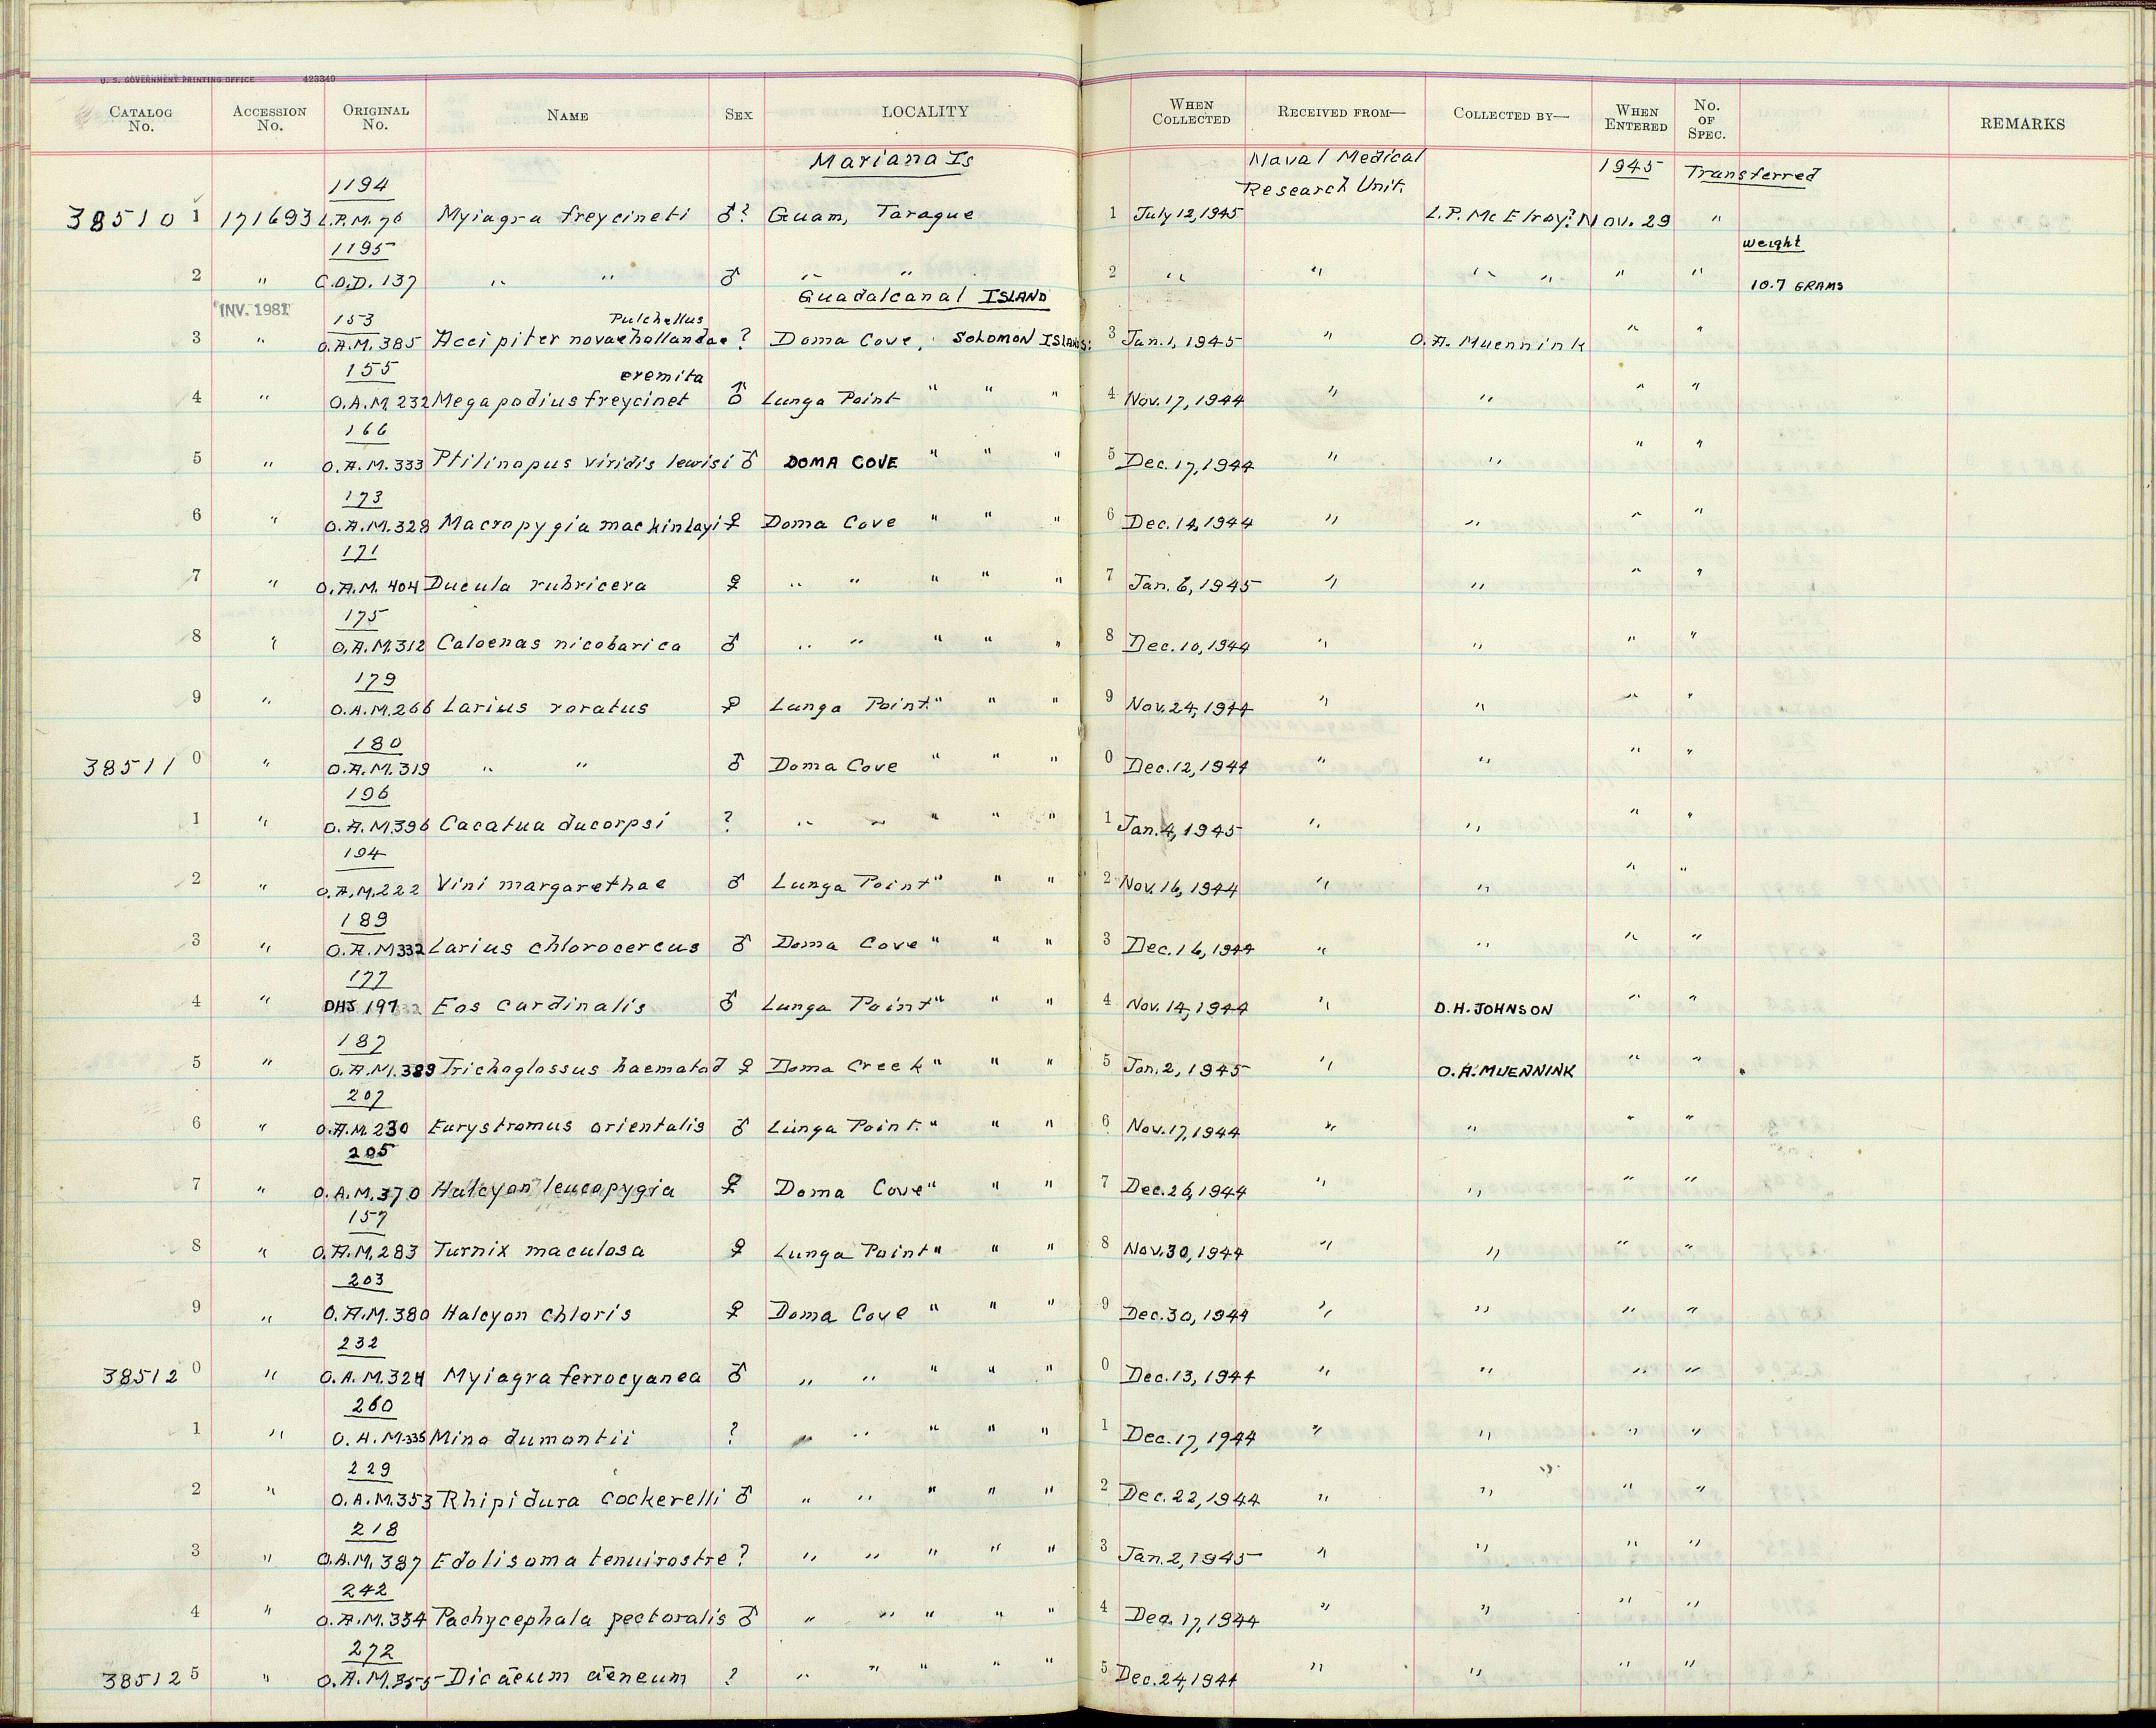 U. S. GOVERNMENT PRINTING OFFICE 423349
CATALOG No. ACCESSION No. ORIGINAL No. NAME SEX LOCALITY WHEN COLLECTED RECEIVED FROM— COLLECTED BY— WHEN ENTERED NO. OF SPEC. REMARKS
Mariana Is Naval Medical 1945 Transferred
1194 Research Unit.
38510 1 171693 L.P.M. 76 Myiagra freycineti ♂? Guam, Tarague 1 July 12, 1945 L.P. McElroy? Nov. 29 "
1195 weight
2 " C.O.D. 137 " " ♂ " " 2 " " " " " " 10.7 GRAMS
INV. 1981 Guadalcanal ISLAND
153 Pulchellus
3 " O.A.M. 385 Accipiter novaehollandae ? Doma Cove, SOLOMON ISLANDS: 3 Jan. 1, 1945 " O.A. Muennink " "
155 eremita
4 " O.A.M. 232 Megapodius freycinet ♂ Lunga Point " " " 4 Nov. 17, 1944 " " " "
166
5 " O.A.M. 333 Ptilinopus viridis lewisi ♂ DOMA COVE " " " 5 Dec. 17, 1944 " " " "
173
6 " O.A.M. 328 Macropygia mackinlayi ♀ Doma Cove " " " 6 Dec. 14, 1944 " " " "
171
7 " O.A.M. 404 Ducula rubricera ♀ " " " " " 7 Jan. 6, 1945 " " " "
175
8 " O.A.M. 312 Caloenas nicobarica ♂ " " " " " 8 Dec. 10, 1944 " " " "
179
9 " O.A.M. 266 Larius roratus ♀ Lunga Point " " " 9 Nov. 24, 1944 " " " "
180
38511 0 " O.A.M. 319 " " ♂ Doma Cove " " " 0 Dec. 12, 1944 " " " "
196
1 " O.A.M. 396 Cacatua ducorpsi ? " " " " " 1 Jan. 4, 1945 " " " "
194
2 " O.A.M. 222 Vini margarethae ♂ Lunga Point " " " 2 Nov. 16, 1944 " " " "
189
3 " O.A.M 332 Larius chlorocercus ♂ Doma Cove " " " 3 Dec. 16, 1944 " " " "
177
4 " DHJ 197 Eos cardinalis ♂ Lunga Point " " " 4 Nov. 14, 1944 " D.H. JOHNSON " "
187
5 " O.A.M. 389 Trichoglossus haematod ♀ Doma Creek " " " 5 Jan. 2, 1945 " O.A. MUENNINK " "
207
6 " O.A.M. 230 Eurystromus orientalis ♂ Lunga Point. " " " 6 Nov. 17, 1944 " " " "
205
7 " O.A.M. 370 Halcyon leucopygia ♀ Doma Cove " " " 7 Dec. 26, 1944 " " " "
157
8 " O.A.M. 283 Turnix maculosa ♀ Lunga Point " " " 8 Nov. 30, 1944 " " " "
203
9 " O.A.M. 380 Halcyon chloris ♀ Doma Cove " " " 9 Dec. 30, 1944 " " " "
232
38512 0 " O.A.M. 324 Myiagra ferrocyanea ♂ " " " " " 0 Dec. 13, 1944 " " " "
260
1 " O.A.M. 335 Mino dumontii ? " " " " " 1 Dec. 17, 1944 " " " "
229
2 " O.A.M. 353 Rhipidura cockerelli ♂ " " " " " 2 Dec. 22, 1944 " " " "
218
3 " O.A.M. 387 Edolisoma tenuirostre ? " " " " " 3 Jan. 2, 1945 " " " "
242
4 " O.A.M. 334 Pachycephala pectoralis ♂ " " " " " 4 Dec. 17, 1944 " " " "
272
38512 5 " O.A.M. 355 Dicaeum aeneum ? " " " " " 5 Dec. 24, 1944 " " " "